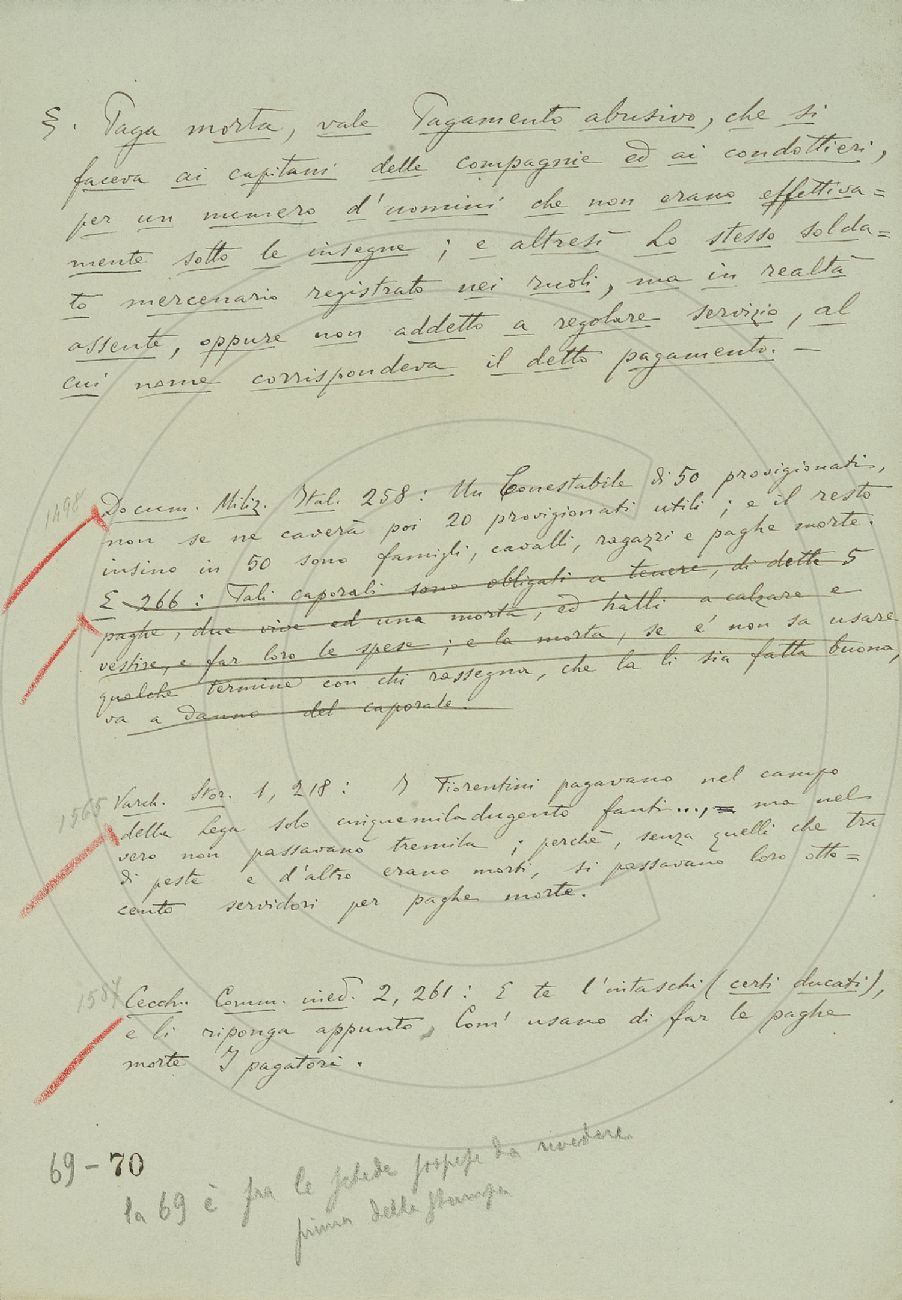 §. Paga morta, vale Pagamento abusivo, che si
faceva ai capitani delle compagnie ed ai condottieri,
per un numero d'uomini che non erano effettiva=
mente sotto le insegne; e altresì Lo stesso solda=
to mercenario registrato nei ruoli, ma in realtà
assente, oppure non addetto a regolare servizio, al
cui nome corrispondeva il detto pagamento. —
1498
Docum. Miliz. Ital. 258: Un Conestabile di 50 provigionati,
non se ne caverà poi 20 provigionati utili; e il resto
insino in 50 sono famigli, cavalli, ragazzi e paghe morte.
E 266: Tali caporali sono obligati a tenere, di dette 5
paghe, due vive ed una morta, ed hàlli a calzare e
vestire, e far loro le spese; e la morta, se e' non sa usare
qualche termine con chi rassegna, che la li sia fatta buona,
va a danno del caporale.
1565
Varch. Stor. 1, 218: I Fiorentini pagavano nel campo
della Lega solo cinquemiladugento fanti..., = ma nel
vero non passavano tremila; perchè, senza quelli che tra
di peste e d'altro erano morti, si passavano loro otto=
cento servidori per paghe morte.
1587
Cecch. Comm. ined. 2, 261: E te l'intaschi (certi ducati),
e li riponga appunto, Com' usano di far le paghe
morte I pagatori.
69-70
la 69 è fra le schede sospese da rivedere
prima della stampa